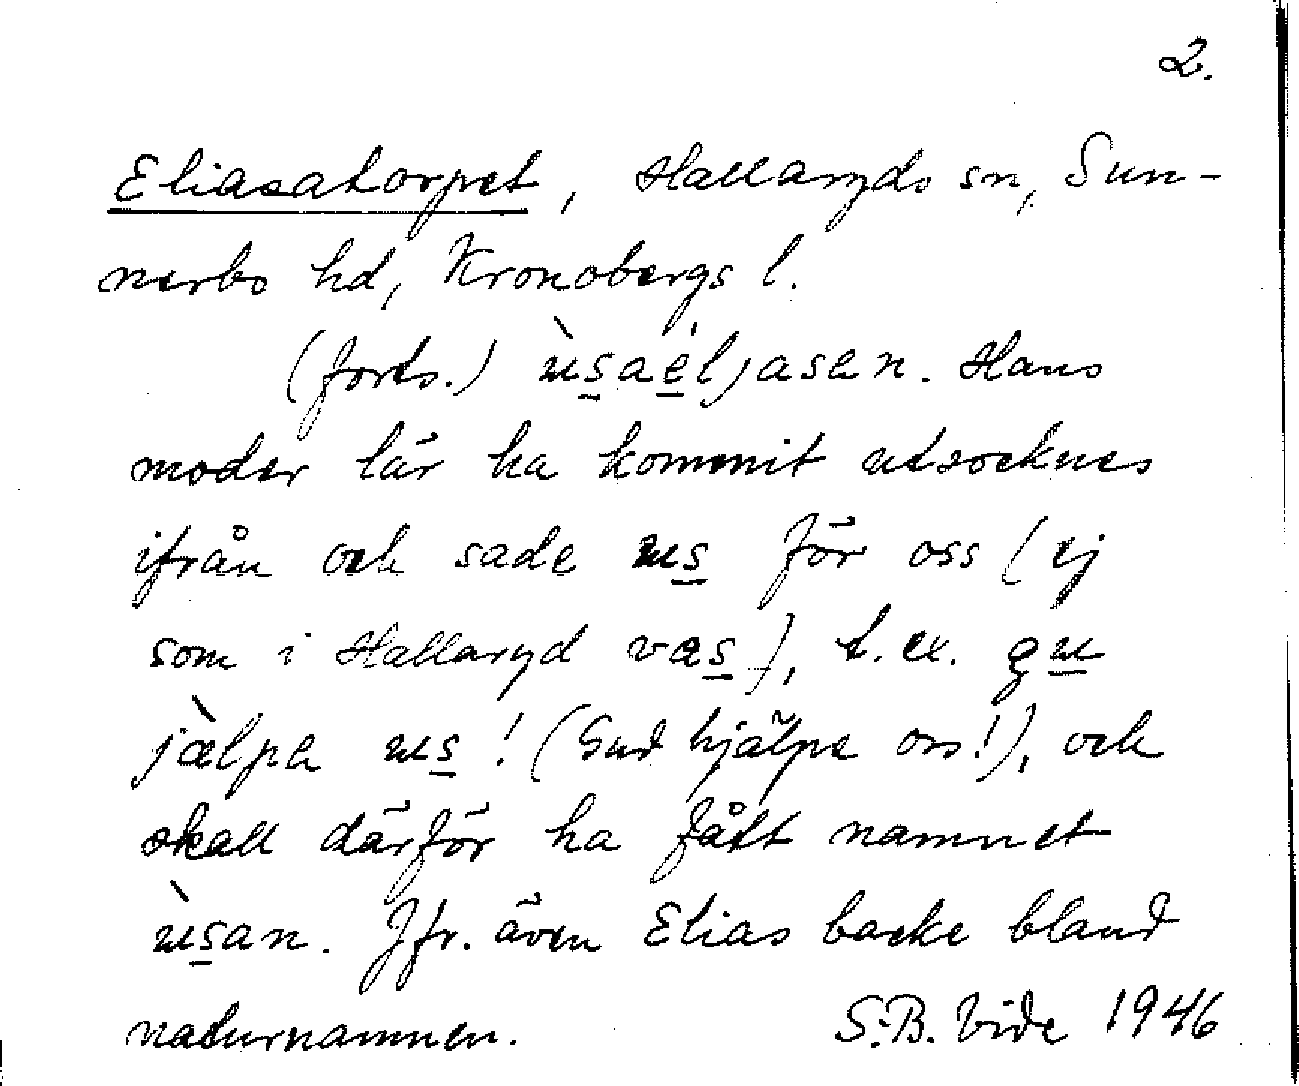 2.
Eliasatorpet, Hallaryds sn, Sun-
nerbo hd, Kronobergs l.
(forts.) ùsaéljasen. Hans
moder lär ha kommit utsocknes
ifrån och sade us för oss (ej
som i Hallaryd vas), t.ex. gu
jàlpa us! (Gud hjälpe oss!), och
skall därför ha fått namnet
ùsan. Jfr. även Elias backe bland
naturnamnen. S.-B. Vide 1946